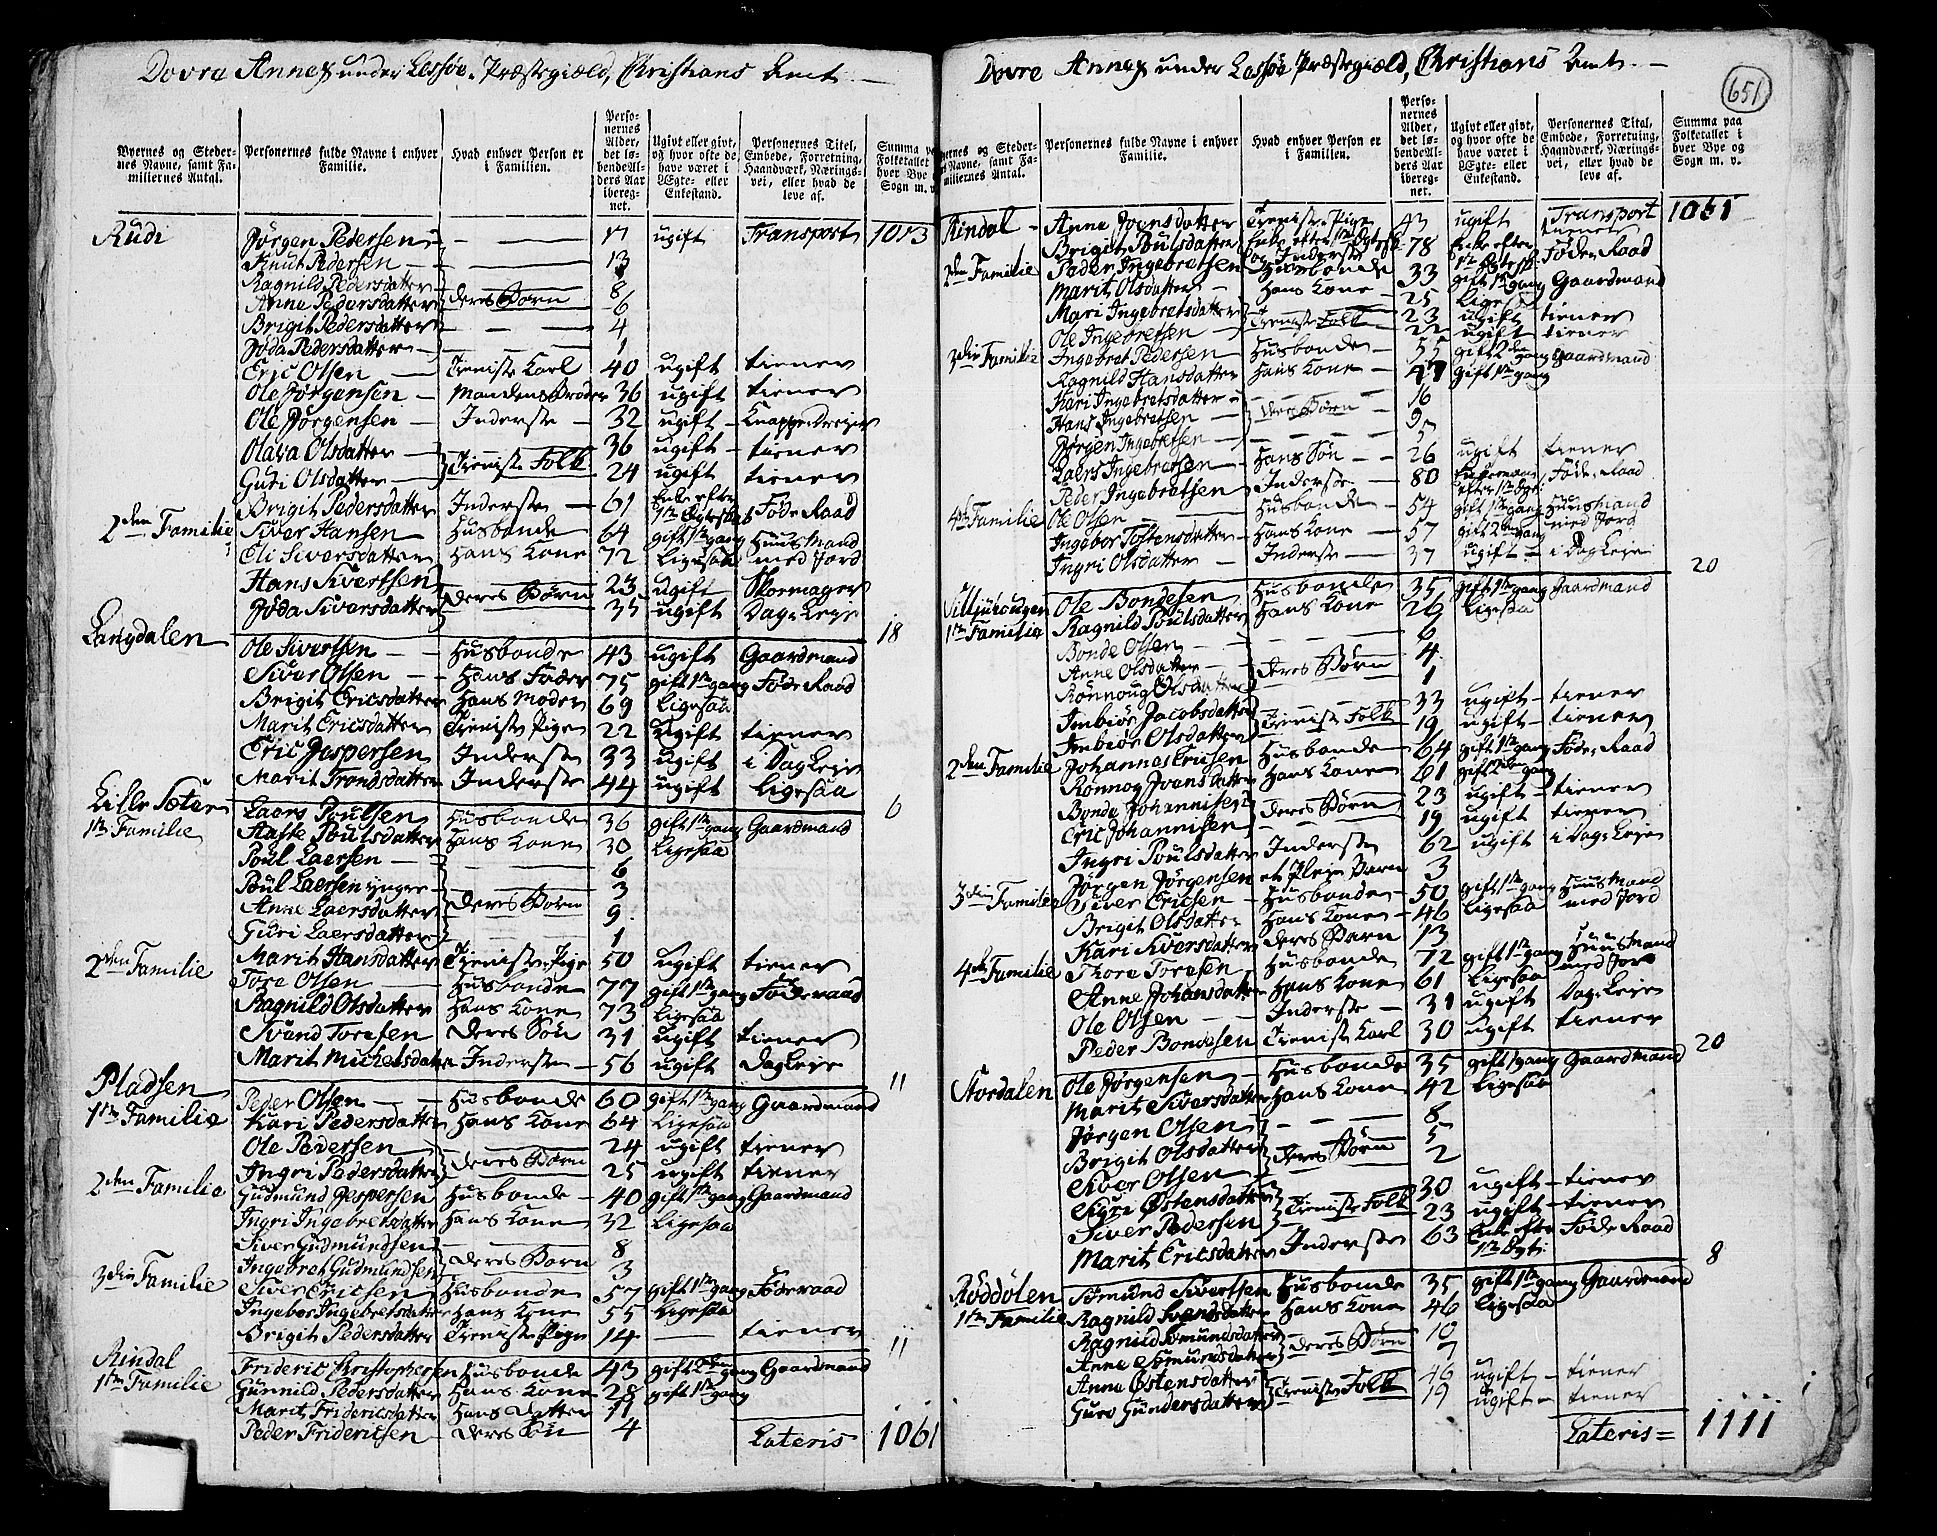 Dovre Annex under Lessøe Præstegiæld, Christians Amt
Byernes og Stedernes Navne, samt Familiernes Antal.
Personernes fulde Navne i enhver Familie.
Hvad enhver Person er i Familien.
Personernes Alder, det løbende Alders Aar iberegnet.
Ugivt eller givt, og hvor ofte de have været i Ægte- eller Enkestand.
Personernes Titel, Embede, Forretning, Haandværk, Næringsvei, eller hvad de leve af.
Summa paa Folketallet i hver Bye og Sogn m. v.
Rudi Jørgen Pedersen 17 ugift Transport 1013
Knut Pedersen 13
Ragnild Pedersdatter 8
Anne Pedersdatter deres Børn 6
Brigit Pedersdatter 4
Jøda Pedersdatter 1
Eric Olsen Tieniste Carl 40 ugift tiener
Ole Jørgensen Mandens Broder 36 ugift tiener
Ole Jørgensen Inderste 32 ugift Knappe Dreier
Olava Olsdatter 36 ugift tiener
Guri Olsdatter Tieniste Folk 24 ugift tiener
Brigit Pedersdatter Inderste 61 Enke efter 1te Ægteskab Føde Raad
2den Familie Siver Hansen Husbonde 64 gift 1te gang Huus Mand
Eli Siversdatter Hans Kone 72 Ligesaa med Jord
Hans Sivertsen 23 ugift Skoemager
Jøda Siversdatter deres Børn 35 ugift Dag Leje
18
Langdalen Ole Sivertsen Husbonde 43 ugift Gaardmand
Siver Olsen Hans Fader 75 gift 1te gang Føde Raad
Brigit Ericsdatter Hans Moder 69 Ligesaa
Marit Ericsdatter Tieniste Pige 22 Ugift tiener
Eric Jespersen Inderste 33 ugift i Dag Leje
Marit Trondsdatter Inderste 44 ugift Ligesaa
6
Lille Sæter Laers Poulsen Husbonde 36 gift 1te gang Gaardmand
1te Familie Aaste Poulsdatter Hans Kone 30 Ligesaa
Poul Laersen 6
Poul Laersen yngre 3
Anne Laersdatter deres Børn 9
Guri Laersdatter 1
Marit Hansdatter Tieniste Pige 50 Ugift tiener
2den Familie Tore Olsen Husbonde 77 gift 1te gang Føderaad
Ragnild Olsdatter Hans Kone 73 Ligesaa
Svend Toresen Deres Søn 31 ugift tiener
Marit Michelsdatter Inderste 56 ugift Dag Leje
11
Pladsen Peder Olsen Husbonde 60 gift 1te gang Gaardmand
1te Familie Kari Pedersdatter Hans Kone 64 Ligesaa
Ole Pedersen 24 ugift tiener
Ingri Pedersdatter deres Børn 25 ugift tiener
2den Familie Gudmund Jespersen Husbonde 40 gift 1te gang Gaardmand
Ingri Ingebretsdatter Hans Kone 32 Ligesaa
Siver Gudmundsen 8
Ingebret Gudmundsen deres Børn 3
3die Familie Siver Ericsen Husbonde 57 gift 1te gang Føderaad
Ingebor Ingebretsdatter Hans Kone 55 Ligesaa
Brigit Pedersdatter Tieniste Pige 14 tiener
11
Rindal Frideric Christophersen Husbonde 43 gift 2den gang Gaardmand
1te Familie Gunnild Pedersdatter Hans Kone 28 gift 1te gang
Marit Fridericsdatter Hans Datter 11
Peder Fridericsen deres Søn 4
Lateris 1061
Dovre Annex under Lessøe Præstegiæld, Christians Amt
651
Byernes og Stedernes Navne, samt Familiernes Antal.
Personernes fulde Navne i enhver Familie.
Hvad enhver Person er i Familien.
Personernes Alder, det løbende Alders Aar iberegnet.
Ugivt eller givt, og hvor ofte de have været i Ægte- eller Enkestand.
Personernes Titel, Embede, Forretning, Haandværk, Næringsvei, eller hvad de leve af.
Summa paa Folketallet i hver Bye og Sogn m. v.
Transport 1061
Rindal Anne Joensdatter Tieniste Pige 43 ugift tiener
Brigit Poulsdatter Enke efter 1te Ægtesk og Inderste 78 Enke efter 1te Ægtesk Føde Raad
2den Familie Peder Ingebretsen Husbonde 33 gift 1te gang Gaardmand
Marit Olsdatter Hans Kone 25 Ligesaa
Mari Ingebretsdatter 23 ugift tiener
Ole Ingebretsen Tieniste Folk 22 ugift tiener
3die Familie Ingebret Pedersen Husbonde 55 gift 2den gang Gaardmand
Ragnild Hansdatter Hans Kone 47 gift 1te gang
Kari Ingebretsdatter 16
Hans Ingebretsen deres Børn 9
Jørgen Ingebretsen 5
Laers Ingebretsen Hans Søn 26 ugift tiener
Peder Ingebretsen Inderste 80 Enkemand efter 1te Ægt. Føde Raad
4de Familie Ole Olsen Husbonde 54 gift 1te gang Huusmand
Ingebor Toftensdatter Hans Kone 57 gift 2den gang med Jord
Ingri Olsdatter Inderste 37 ugift i Dag Leje
20
Ole Bondesen Husbonde 35 gift 1te gang Gaardmand
1te Familie Ragnild Poulsdatter Hans Kone 26 Ligesaa
Bonde Olsen 6
Anne Olsdatter deres Børn 4
Rønnoug Olsdatter 1
Imbiør Jacobsdatter 33 ugift tiener
Imbiør Olsdatter Tieniste Folk 19 ugift tiener
2den Familie Johannes Ericsen Husbonde 64 gift 1te gang Føde Raad
Rønnog Joensdatter Hans Kone 61 gift 2den gang
Bonde Johannisen 23 ugift tiener
Eric Johannisen deres Børn 19 ugift tiener
Ingri Poulsdatter Inderste 62 ugift i Dag Leje
Jørgen Jørgensen et Pleje Barn 3
3die Familie Siver Ericsen Husbonde 50 gift 1te gang Huus Mand
Brigit Olsdatter Hans Kone 46 Ligesaa med Jord
Kari Siversdatter deres Barn 13
4de Familie Thore Toresen Husbonde 72 gift 1te gang Huus Mand
Anne Johansdatter Hans Kone 61 Ligesaa med Jord
Ole Olsen Inderste 31 ugift Dag Leje
Peder Bondesen Tieniste Karl 30 ugift tiener
20
Stordalen Ole Jørgensen Husbonde 35 gift 1 gang Gaardmand
Marit Siversdatter Hans Kone 42 Ligesaa
Jørgen Olsen 8
Brigit Olsdatter deres Børn 5
Siver Olsen 2
Sigri Østensdatter 30 ugift tiener
Siver Pedersen Tieniste Folk 23 ugift tiener
Marit Ericsdatter Inderste 63 Enke efter 1te Ægt. Føde Raad
8
Røddølen Sømund Sivertsen Husbonde 35 gift 1te gang Gaardmand
1te Familie Ragnild Svendsdatter Hans Kone 46 Ligesaa
Ragnild Sømundsdatter 10
Anne Sømundsdatter deres Børn 7
Anne Østensdatter 46 ugift tiener
Guro Gundersdatter Tieniste Folk 19 ugift tiener
Lateris 1111